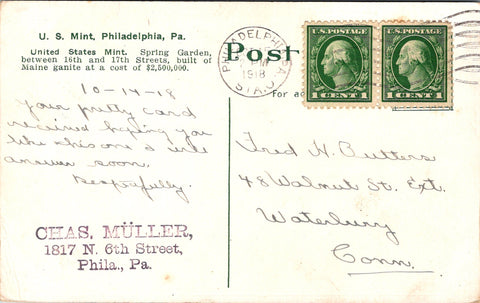 U. S. Mint, Philadelphia, Pa.
United States Mint. Spring Garden,
between 16th and 17th Streets, built of
Maine ganite at a cost of $2,500,000.
Post
for ad
PHILADELPHIA, PA.
PM
1918
STA. J
U.S. POSTAGE
1 CENT 1
U.S. POSTAGE
1 CENT 1
10-14-18
Your pretty card
received hoping you
like this one & will
answer soon.
Respectfully.
CHAS. MÜLLER,
1817 N. 6th Street,
Phila., Pa.
Fred H. Butters
48 Walnut St. Ext.
Waterbury
Conn.